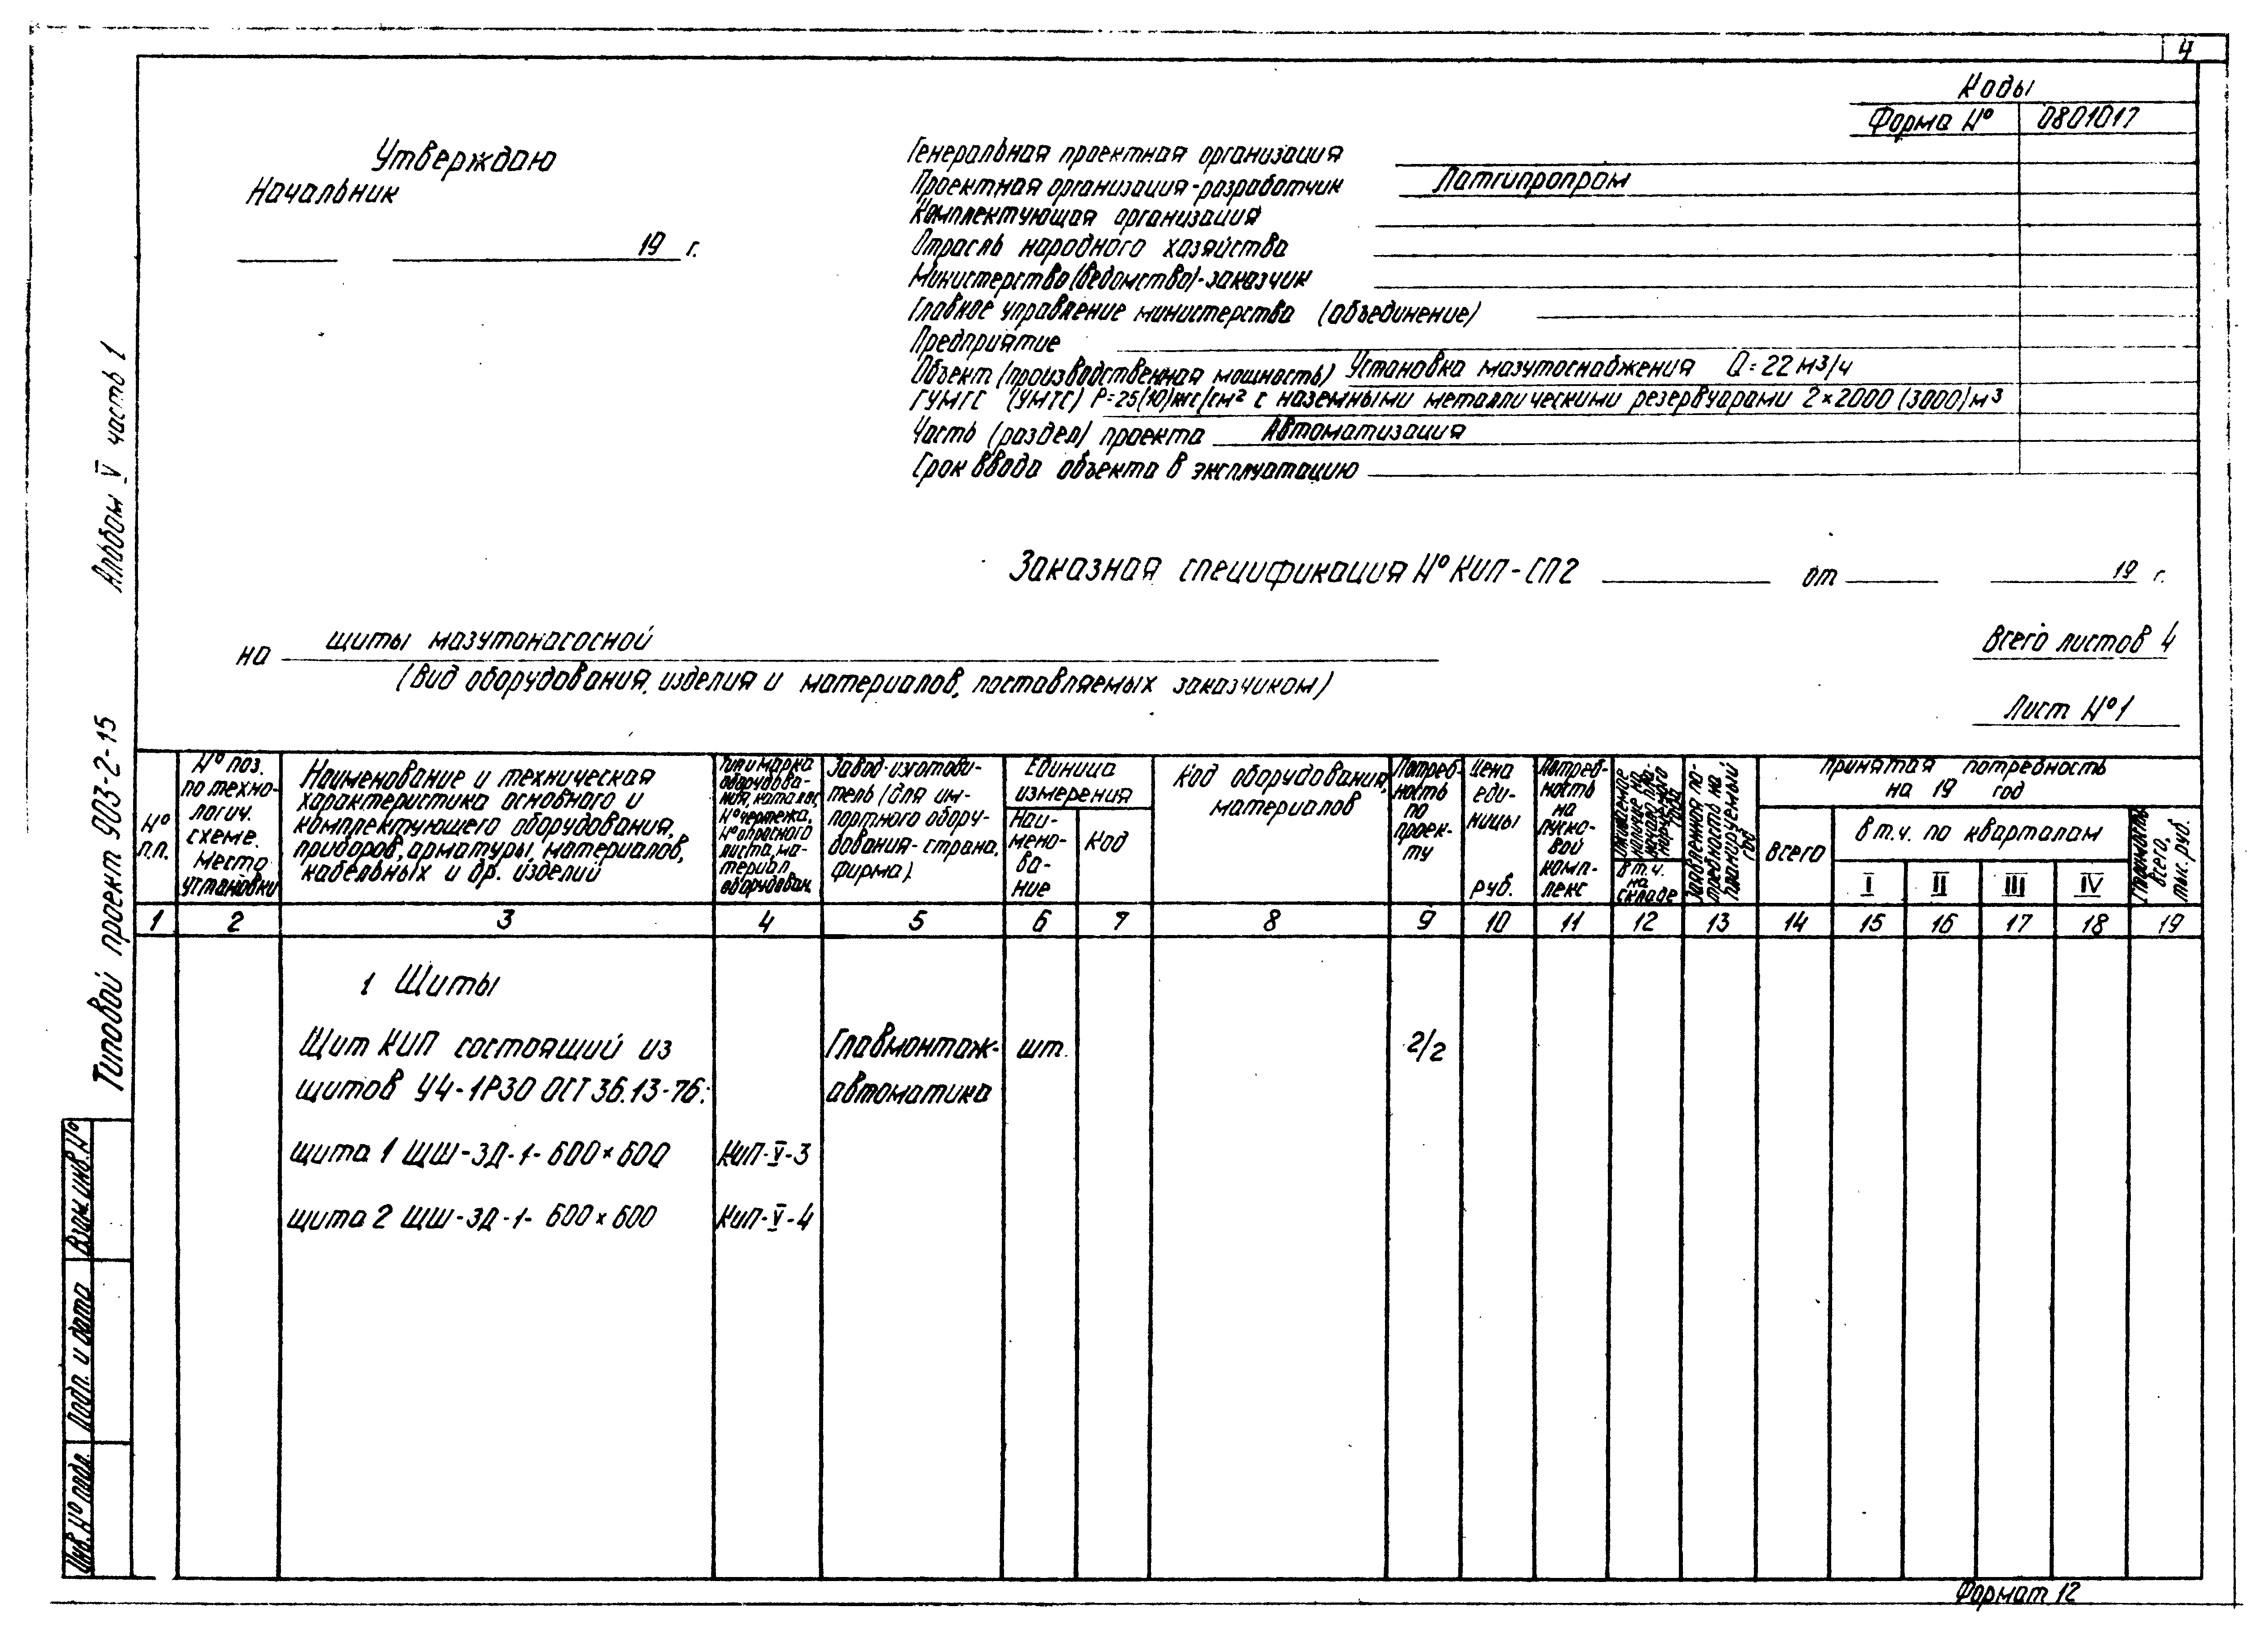 4
Коды
Форма № 0801017
Утверждаю
Начальник
19 г.
Генеральная проектная организация
Проектная организация-разработчик Латгипропром
Комплектующая организация
Отрасль народного хозяйства
Министерство (ведомство)-заказчик
Главное управление министерства (объединение)
Предприятие
Объект (производственная мощность) Установка мазутоснабжения Q=22 м3/ч
ГУМТС (УМТС) P=25(10)кгс/см² с наземными металлическими резервуарами 2×2000 (3000) м3
Часть (раздел) проекта Автоматизация
Срок ввода объекта в эксплуатацию
Заказная спецификация № КИП-СП2 от 19 г.
на щиты мазутонасосной
(вид оборудования, изделия и материалов, поставляемых заказчиком)
Всего листов 4
Лист №1
Альбом V часть 1
Типовой проект 903-2-15
№ п.п.
№ поз. по техно-логич. схеме. Место установки
Наименование и техническая
характеристика основного и
комплектующего оборудования,
приборов, арматуры, материалов,
кабельных и др. изделий
Тип и марка оборудова-ния, каталог, № чертежа, № опросного листа, ма-териал оборудован.
Завод-изготови-
тель (для им-
портного обору-
дования-страна,
фирма).
Единица измерения
Наи-мено-ва-ние
Код
Код оборудования, материалов
Потреб-ность по проек-ту
Цена еди-ницы руб.
Потреб-ность на пуско-вой комп-лекс
в т.ч. на складе
Заявленная по-требность на планируемый год
Принятая потребность на 19 год
всего
в т.ч. по кварталам
I II III IV
Стоимость всего, тыс. руб.
1 2 3 4 5 6 7 8 9 10 11 12 13 14 15 16 17 18 19
1 Щиты
Щит КИП состоящий из Главмонтаж- шт. 2/2
щитов У4-1Р30 ОСТ 36.13-76: автоматика
щита 1 ЩШ-ЗД-1-600×600 КИП-V-3
щита 2 ЩШ-ЗД-1-600×600 КИП-V-4
Взам. инв. №
Подп. и дата
Инв. № подл.
Формат 12